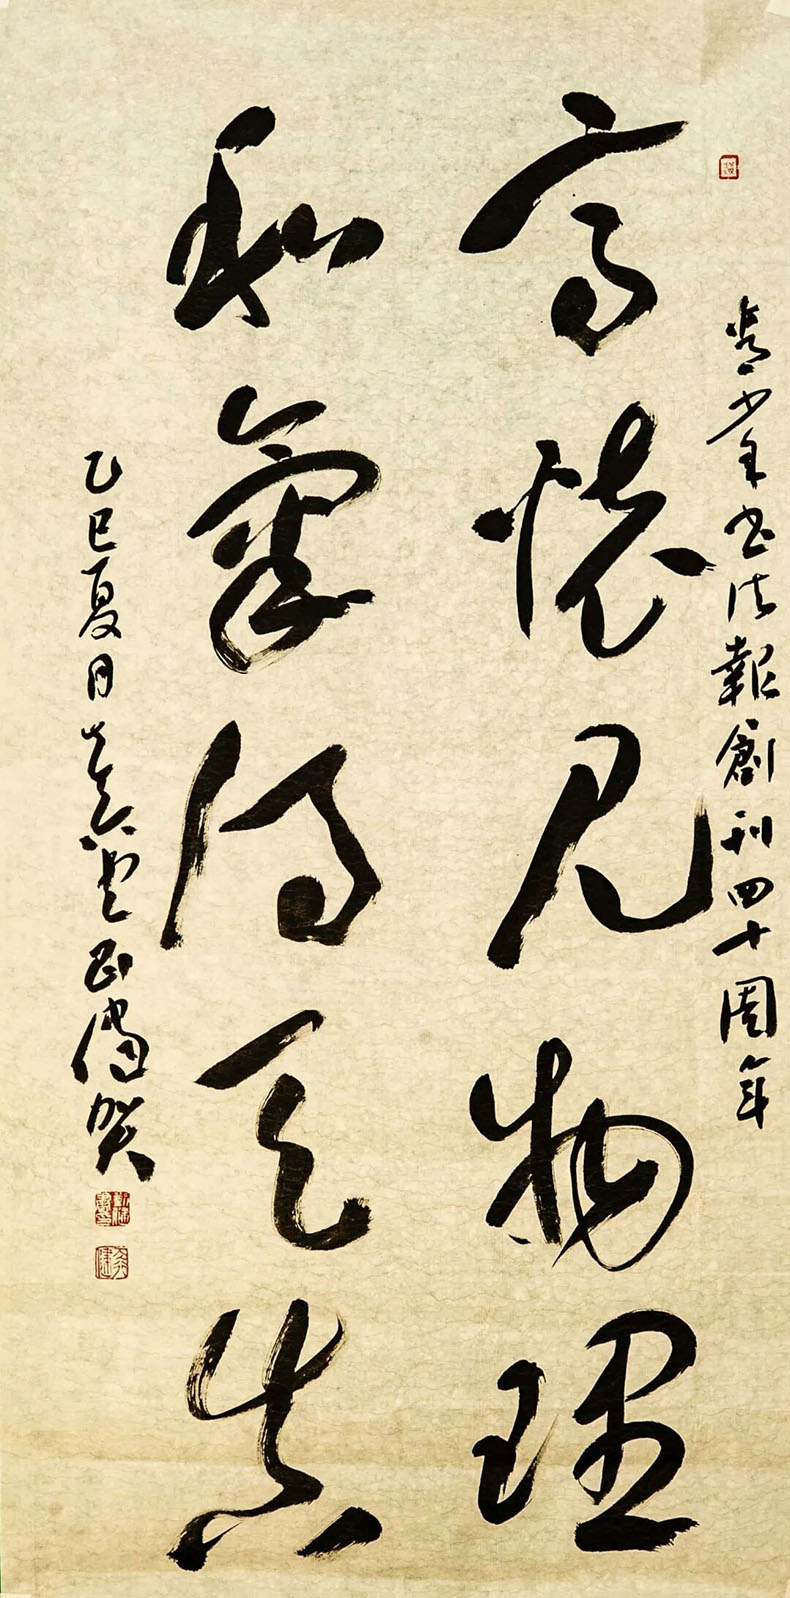 青少年书法報創刊四十周年
高懷見物理
和氣得天真
乙巳夏月
賀